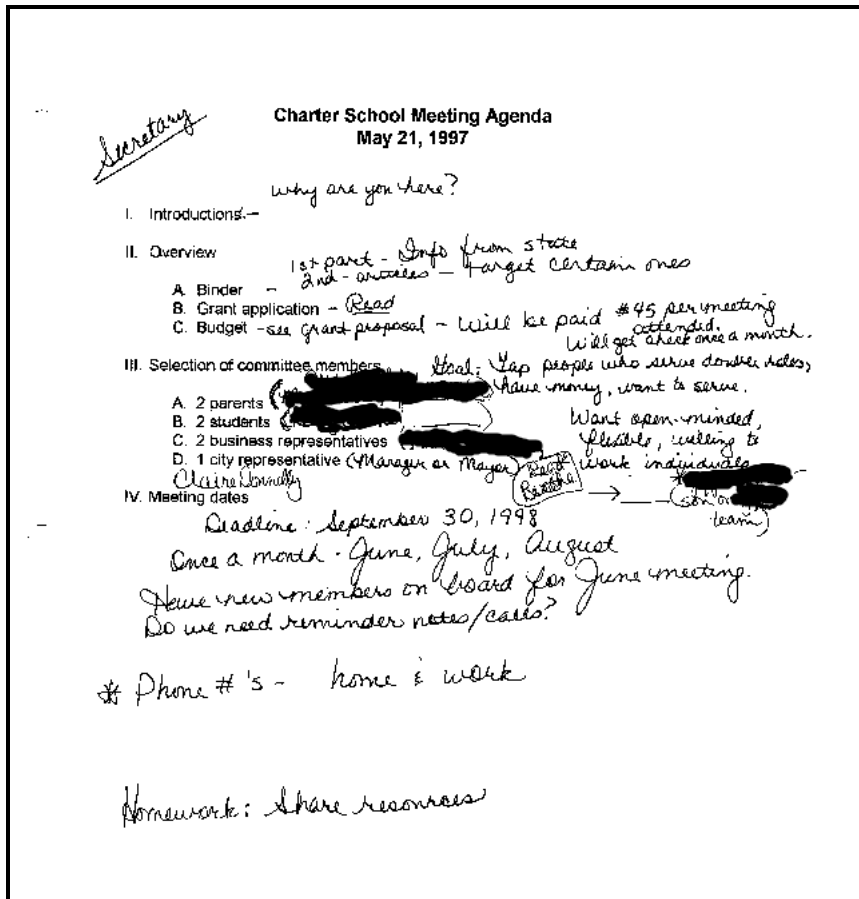 Secretary
Charter School Meeting Agenda
May 21, 1997
why are you here?
I. Introductions -
II. Overview
1st part - Info from state
2nd - articles - target certain ones
A. Binder -
B. Grant application - Read
C. Budget - see grant proposal - Will be paid $45 per meeting
attended.
Will get check once a month.
III. Selection of committee members
Goal: Tap people who serve double roles,
have money, want to serve.
A. 2 parents
B. 2 students
C. 2 business representatives
D. 1 city representative (Manager or Mayor)
Want open-minded,
flexible, willing to
work individuals
Claire Donnally
son or
team)
IV. Meeting dates
Deadline: September 30, 1998
Once a month - June, July, August
Have new members on board for June meeting.
Do we need reminder notes/calls?
* Phone #'s - home & work
Homework: Share resources